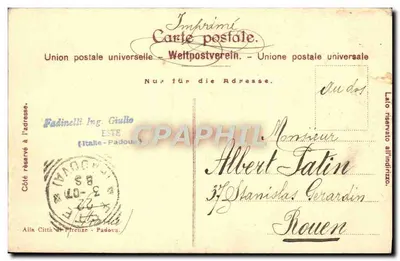 Imprimé
Carte postale.
Union postale universelle. - Weltpostverein. - Unione postale universale
Nur für die Adresse.
Côté réservé à l'adresse.
Lato riservato all'indirizzo.
au dos
Fadinelli Ing. Giulio
ESTE
(Italie-Padoue)
Monsieur
Albert Patin
37 Stanislas Girardin
Rouen
Alla Città di Firenze - Padova.